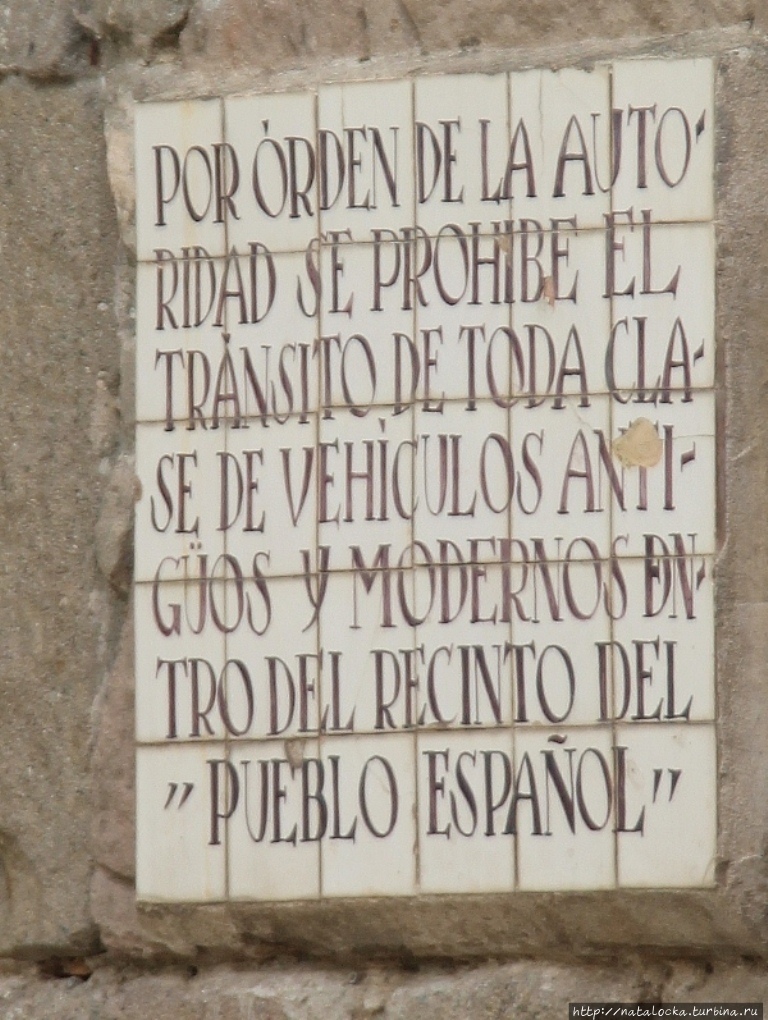 POR ÓRDEN DE LA AUTO-
RIDAD SE PROHIBE EL
TRÀNSITO DE TODA CLA-
SE DE VEHÌCULOS ANTI-
GÜOS Y MODERNOS DEN-
TRO DEL RECINTO DEL
"PUEBLO ESPAÑOL"
http://natalocka.turbina.ru